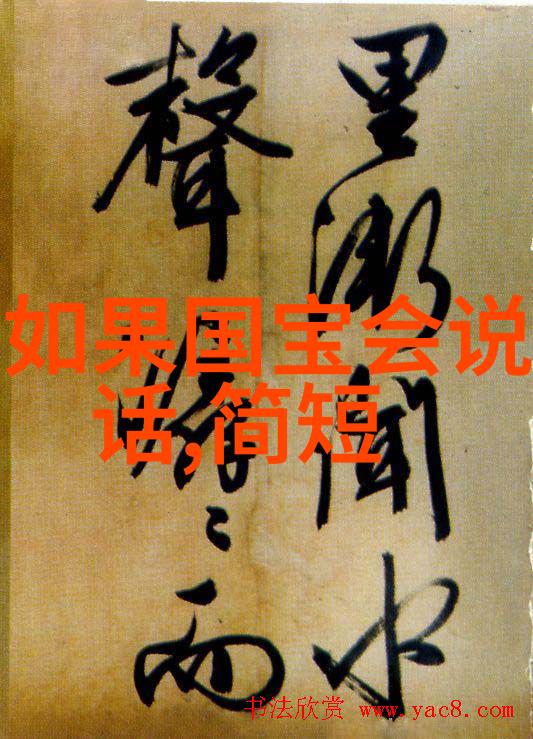 里漸聞水
聲潺〻而
如果国宝会说
话,简短
书法欣赏 www.yac8.com